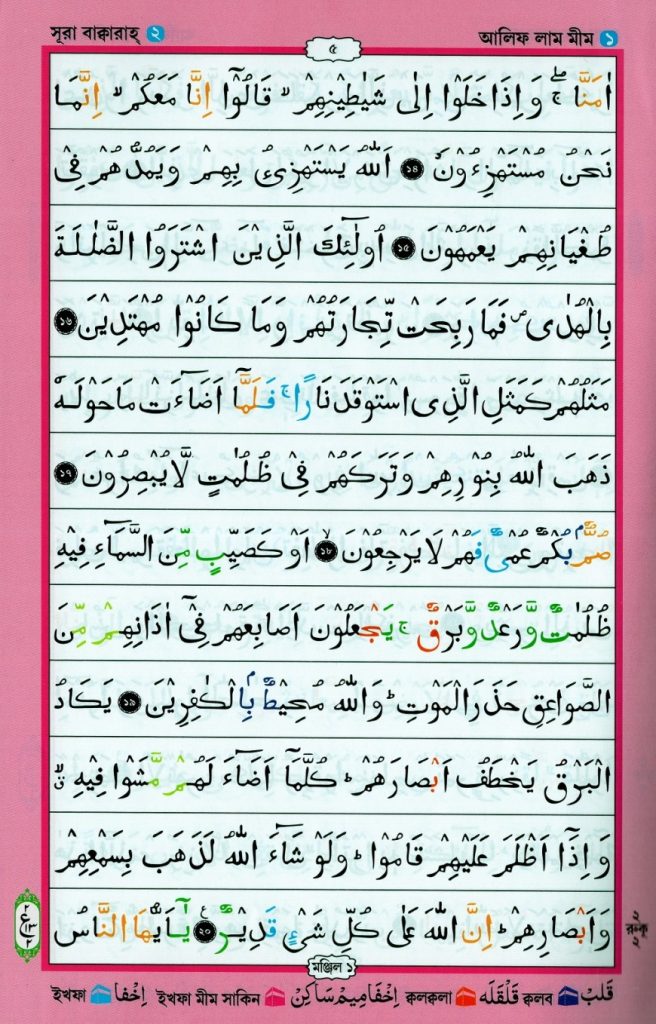 সূরা বাক্বারাহ্ ২
আলিফ লাম মীম ১
৫
اٰمَنَّا ۖۚ وَ اِذَا خَلَوْا اِلٰى شَيٰطِيْنِهِمْ ۙ قَالُوْٓا اِنَّا مَعَكُمْ ۙ اِنَّمَا
نَحْنُ مُسْتَهْزِءُوْنَ ১৪ اَللّٰهُ يَسْتَهْزِئُ بِهِمْ وَيَمُدُّهُمْ فِيْ
طُغْيَانِهِمْ يَعْمَهُوْنَ ১৫ اُولٰٓئِكَ الَّذِيْنَ اشْتَرَوُا الضَّلٰلَةَ
بِالْهُدٰى ۪ فَمَا رَبِحَتْ تِّجَارَتُهُمْ وَمَا كَانُوْا مُهْتَدِيْنَ ১৬
مَثَلُهُمْ كَمَثَلِ الَّذِى اسْتَوْقَدَ نَارًا ۚ فَلَمَّآ اَضَآءَتْ مَا حَوْلَهٗ
ذَهَبَ اللّٰهُ بِنُوْرِهِمْ وَتَرَكَهُمْ فِيْ ظُلُمٰتٍ لَّا يُبْصِرُوْنَ ১৭
صُمٌّۢ بُكْمٌ عُمْيٌ فَهُمْ لَا يَرْجِعُوْنَ ১৮ اَوْ كَصَيِّبٍ مِّنَ السَّمَآءِ فِيْهِ
ظُلُمٰتٌ وَّرَعْدٌ وَّبَرْقٌ ۚ يَجْعَلُوْنَ اَصَابِعَهُمْ فِيْٓ اٰذَانِهِمْ مِّنَ
الصَّوَاعِقِ حَذَرَ الْمَوْتِ ؕ وَاللّٰهُ مُحِيْطٌۢ بِالْكٰفِرِيْنَ ১৯ يَكَادُ
الْبَرْقُ يَخْطَفُ اَبْصَارَهُمْ ؕ كُلَّمَآ اَضَآءَ لَهُمْ مَّشَوْا فِيْهِ ۙق
وَ اِذَآ اَظْلَمَ عَلَيْهِمْ قَامُوْا ؕ وَلَوْ شَآءَ اللّٰهُ لَذَهَبَ بِسَمْعِهِمْ
وَاَبْصَارِهِمْ ؕ اِنَّ اللّٰهَ عَلٰى كُلِّ شَيْءٍ قَدِيْرٌ ২০ ع يٰٓاَيُّهَا النَّاسُ
২
ع ১৩
২
২
রুকূ
২
মঞ্জিল ১
قَلْبْ কলব قَلْقَلَه ক্বলক্বলা اِخْفَا مِيْم سَاكِنْ ইখফা মীম সাকিন اِخْفَا ইখফা